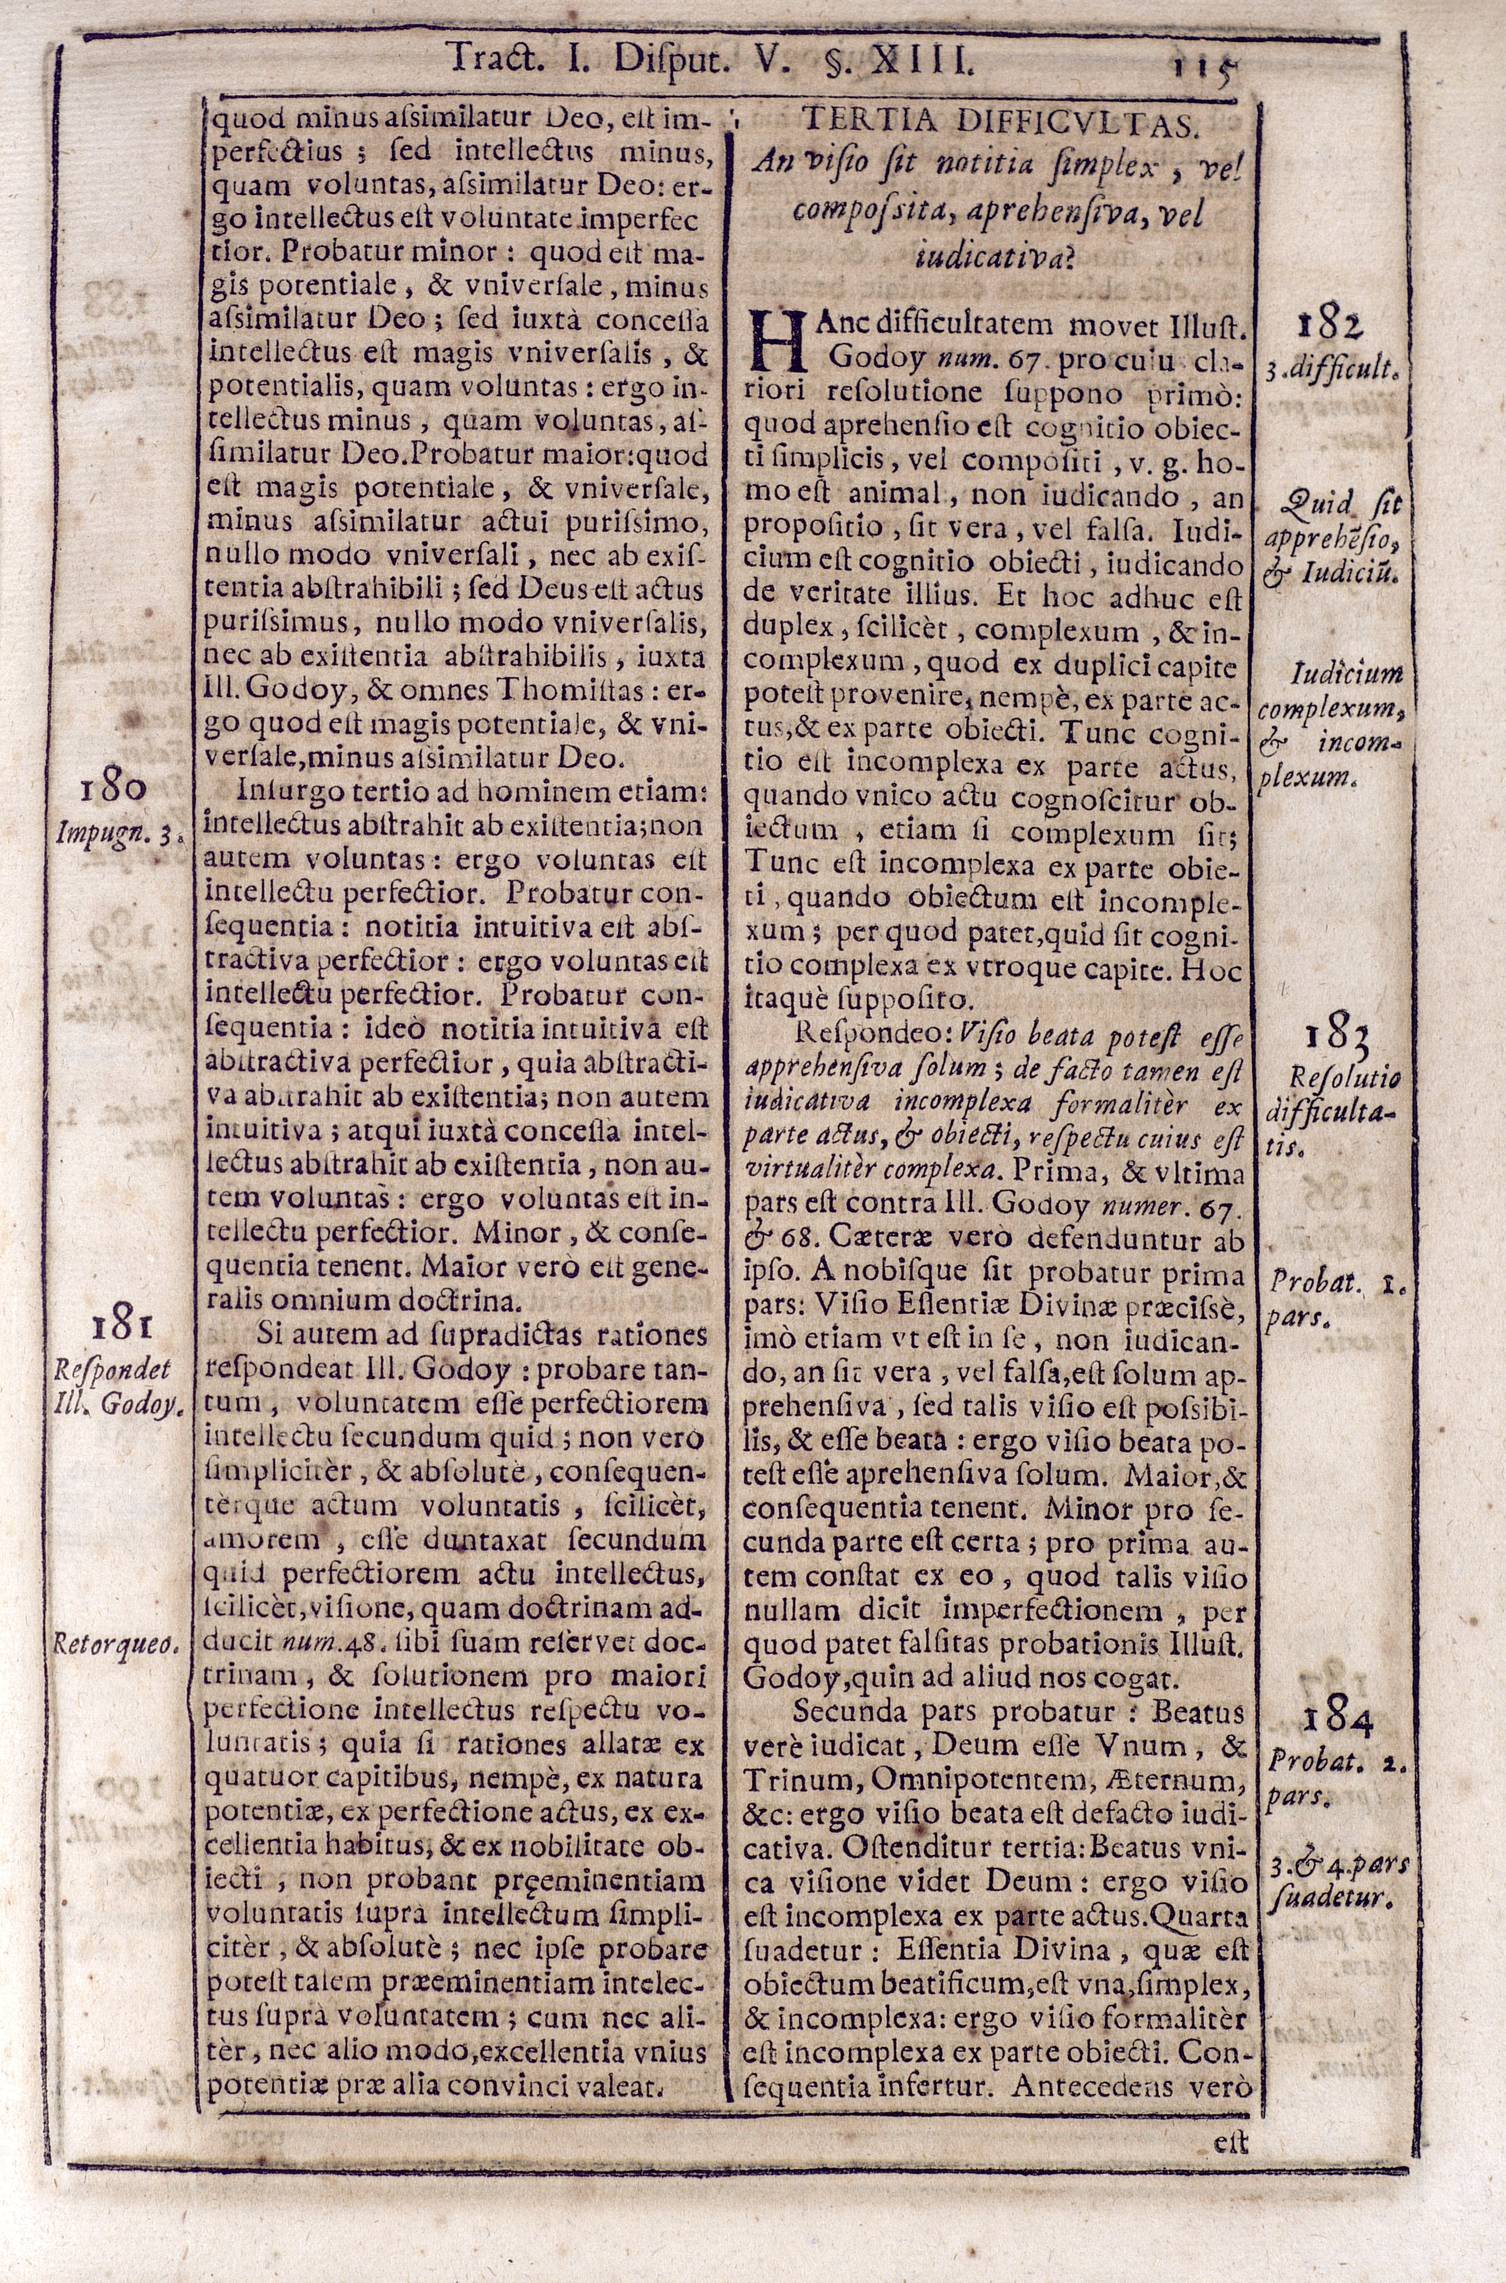 Tract. I. Disput. V. §. XIII. 115
quod minus assimilatur Deo, est im-
perfectius ; sed intellectus minus,
quam voluntas, assimilatur Deo: er-
go intellectus est voluntate imperfec
tior. Probatur minor : quod est ma-
gis potentiale, & vniversale, minus
assimilatur Deo ; sed iuxtà concessa
intellectus est magis vniversalis, &
potentialis, quam voluntas : ergo in-
tellectus minus, quam voluntas, as-
similatur Deo. Probatur maior: quod
est magis potentiale, & vniversale,
minus assimilatur actui purissimo,
nullo modo vniversali, nec ab exis-
tentia abstrahibili ; sed Deus est actus
purissimus, nullo modo vniversalis,
nec ab existentia abstrahibilis, iuxta
Ill. Godoy, & omnes Thomistas : er-
go quod est magis potentiale, & vni-
versale, minus assimilatur Deo.
180
Impugn. 3.
Insurgo tertio ad hominem etiam:
intellectus abstrahit ab existentia; non
autem voluntas : ergo voluntas est
intellectu perfectior. Probatur con-
sequentia : notitia intuitiva est abs-
tractiva perfectior : ergo voluntas est
intellectu perfectior. Probatur con-
sequentia : ideò notitia intuitiva est
abstractiva perfectior, quia abstracti-
va abstrahit ab existentia; non autem
intuitiva ; atqui iuxtà concessa intel-
lectus abstrahit ab existentia, non au-
tem voluntas : ergo voluntas est in-
tellectu perfectior. Minor, & conse-
quentia tenent. Maior verò est gene-
ralis omnium doctrina.
181
Respondet
Ill. Godoy.
Si autem ad supradictas rationes
respondeat Ill. Godoy : probare tan-
tum, voluntatem esse perfectiorem
intellectu secundum quid ; non verò
simplicitèr, & absolutè, consequen-
tèrque actum voluntatis, scilicèt,
amorem, esse duntaxat secundum
quid perfectiorem actu intellectus,
scilicèt, visione, quam doctrinam ad-
Retorqueo.
ducit num. 48. sibi suam reservet doc-
trinam, & solutionem pro maiori
perfectione intellectus respectu vo-
luntatis ; quia si rationes allatæ ex
quatuor capitibus, nempè, ex natura
potentiæ, ex perfectione actus, ex ex-
cellentia habitus, & ex nobilitate ob-
iecti, non probant pręeminentiam
voluntatis suprà intellectum simpli-
citèr, & absolutè ; nec ipse probare
potest talem præeminentiam intelec-
tus suprà voluntatem ; cum nec ali-
tèr, nec alio modo, excellentia vnius
potentiæ præ alia convinci valeat.
TERTIA DIFFICVLTAS.
An visio sit notitia simplex, vel
compossita, aprehensiva, vel
iudicativa?
182
3. difficult.
HAnc difficultatem movet Illust.
Godoy num. 67. pro cuiu cla-
riori resolutione suppono primò:
quod aprehensio est cognitio obiec-
ti simplicis, vel compositi, v. g. ho-
mo est animal, non iudicando, an
propositio, sit vera, vel falsa. Iudi-
cium est cognitio obiecti, iudicando
de veritate illius. Et hoc adhuc est
Quid sit
apprehẽsio,
& Iudiciũ.
duplex, scilicèt, complexum, & in-
complexum, quod ex duplici capite
potest provenire, nempè, ex parte ac-
tus, & ex parte obiecti. Tunc cogni-
tio est incomplexa ex parte actus,
Iudicium
complexum,
& incom-
plexum.
quando vnico actu cognoscitur ob-
iectum, etiam si complexum sit;
Tunc est incomplexa ex parte obie-
ti, quando obiectum est incomple-
xum ; per quod patet, quid sit cogni-
tio complexa ex vtroque capite. Hoc
itaquè supposito.
183
Resolutio
difficulta-
tis.
Respondeo: Visio beata potest esse
apprehensiva solum ; de facto tamen est
iudicativa incomplexa formalitèr ex
parte actus, & obiecti, respectu cuius est
virtualitèr complexa. Prima, & vltima
pars est contra Ill. Godoy numer. 67.
& 68. Cæteræ verò defenduntur ab
ipso. A nobisque sit probatur prima
Probat. 1.
pars.
pars: Visio Essentiæ Divinæ præcissè,
imò etiam vt est in se, non iudican-
do, an sit vera, vel falsa, est solum ap-
prehensiva, sed talis visio est possibi-
lis, & esse beata : ergo visio beata po-
test esse aprehensiva solum. Maior, &
consequentia tenent. Minor pro se-
cunda parte est certa ; pro prima au-
tem constat ex eo, quod talis visio
nullam dicit imperfectionem, per
quod patet falsitas probationis Illust.
Godoy, quin ad aliud nos cogat.
184
Probat. 2.
pars.
Secunda pars probatur : Beatus
verè iudicat, Deum esse Vnum, &
Trinum, Omnipotentem, Æternum,
&c: ergo visio beata est defacto iudi-
cativa. Ostenditur tertia: Beatus vni-
3. & 4. pars
suadetur.
ca visione videt Deum : ergo visio
est incomplexa ex parte actus. Quarta
suadetur : Essentia Divina, quæ est
obiectum beatificum, est vna, simplex,
& incomplexa: ergo visio formalitèr
est incomplexa ex parte obiecti. Con-
sequentia infertur. Antecedens verò
est